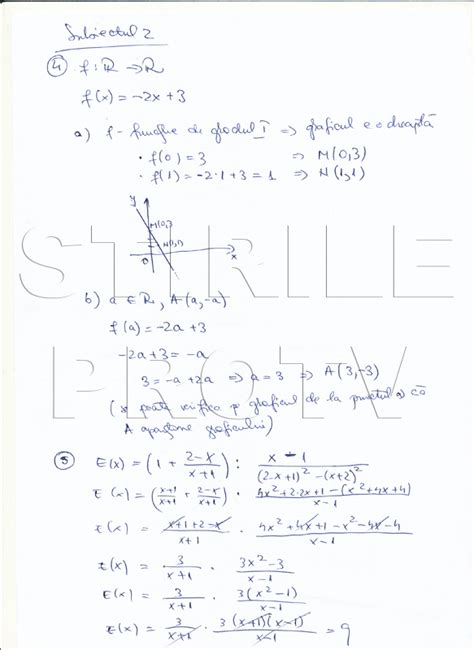 Subiectul 2
④ f : R → R
f(x) = -2x + 3
a) f - funcție de gradul I ⇒ graficul e o dreaptă
· f(0) = 3 ⇒ M(0,3)
· f(1) = -2·1 + 3 = 1 ⇒ N(1,1)
y
M(0,3)
N(1,1)
O x
STIRILE
b) a ∈ R, A(a, -a)
f(a) = -2a + 3
-2a + 3 = -a
3 = -a + 2a ⇒ a = 3 ⇒ A(3, -3)
PROTV
(se poate verifica pe graficul de la punctul a) că
A aparține graficului)
⑤ E(x) = (1 + (2-x)/(x+1)) : (x-1)/((2·x+1)² - (x+2)²)
E(x) = ((x+1)/(x+1) + (2-x)/(x+1)) · (4x² + 2·2x + 1 - (x² + 4x + 4))/(x-1)
E(x) = (x+1+2-x)/(x+1) · (4x² + 4x + 1 - x² - 4x - 4)/(x-1)
E(x) = 3/(x+1) · (3x² - 3)/(x-1)
E(x) = 3/(x+1) · 3(x² - 1)/(x-1)
E(x) = 3/(x+1) · 3(x+1)(x-1)/(x-1) = 9